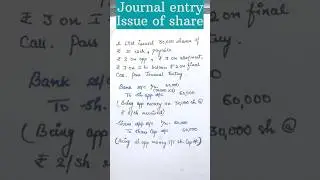 Journal entry
Issue of share
₹ 3 on I
on final
Call. Pass Journal Entry.
X Ltd issued 30,000 shares of
₹ 10 each, payable
₹ 2 on app, ₹ 3 on allotment,
₹ 3 on I & balance ₹ 2 on final
Call. Pass Journal Entry
Bank a/c Dr. 60,000
To sh app a/c 60,000
(Being app money on 30,000 sh @
₹ 2/sh received)
Share app a/c Dr. 60,000
To share Cap a/c 60,000
(Being sh app money t/f sh Cap a/c)